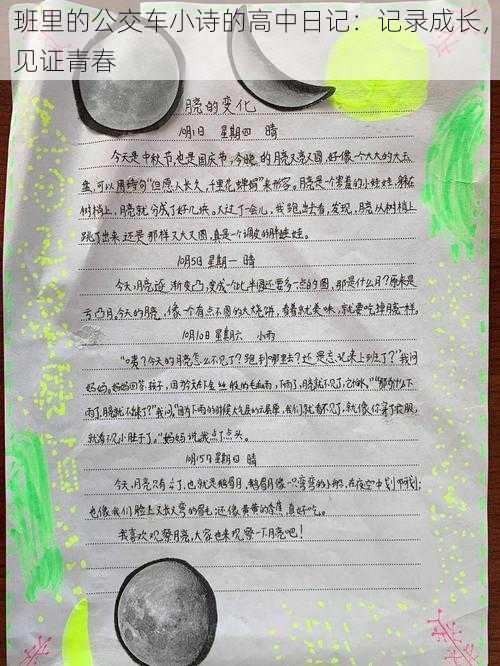 班里的公交车小诗的高中日记：记录成长，
见证青春
月亮的变化
10月1日 星期四 晴
今天是中秋节，也是国庆节，今晚的月亮又亮又圆，好像一个大大的大玉
盘，可以用诗句“但愿人长久，千里
来形容。月亮是个害羞的小娃娃，躲在
树梢上，月亮就分成了好几块。又过了一会儿，我跑出去看，发现，月亮从树梢上
跳了出来，还是那样又大又圆，真是一个调皮的胖娃娃。
10月5日 星期一 晴
今天，月亮逐渐变凸，变成一个比半圆还要多一点的圆，那是什么月？原来是
亏凸月。今天的月亮，像一个有点不圆的大烧饼，看着就美味，就要吃掉月亮一样。
10月10日 星期六 小雨
“咦？今天的月亮怎么不见了？跑到哪里去？还是忘记来上班了？”我问
妈妈。妈妈回答：孩子，因为今天
的毛毛雨，下雨了，月亮就不见了，
“那为什么下
雨了，月亮就不出来了？”我问。“因为下雨的时候大气层的云层厚，我们就看不见了，就像你穿了衣服，
就看不见小肚子了。”妈妈说，我点了点头。
10月15日 星期日 晴
今天，月亮只有
了，也就是蛾眉月，蛾眉月像一只弯弯的小船，在夜空中划啊划；
也像我们脸上又长又弯的眉毛；还像黄黄的香蕉，真好吃。
我喜欢观察月亮，大家也来观察一下月亮吧！